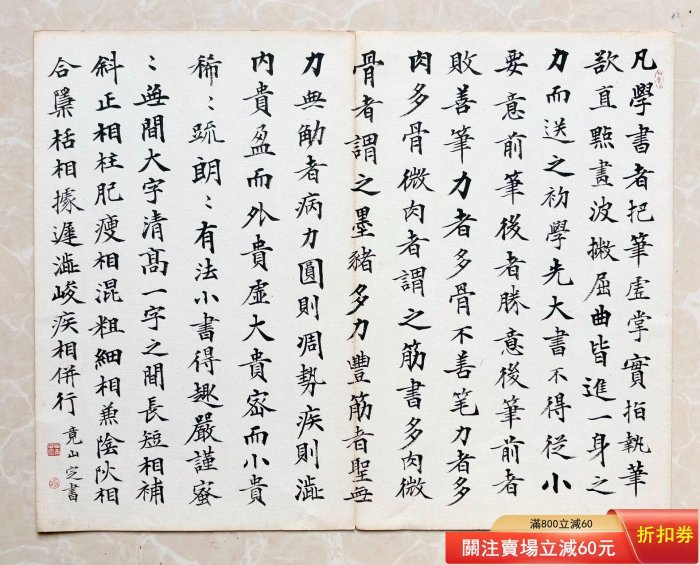 凡學書者把筆虛掌實指執筆
欲直點畫波撇屈曲皆進一身之
力而送之初學先大書不得從小
要意前筆後者勝意後筆前者
敗善筆力者多骨不善笔力者多
肉多骨微肉者謂之筋書多肉微
骨者謂之墨豬多力豐筋者聖無
力無觔者病力圓則凋勢疾則澁
內貴盈而外貴虛大貴密而小貴
稀〻疏朗〻有法小書得趣嚴謹蜜
〻無間大字清髙一字之間長短相補
斜正相柱肥瘦相混粗細相兼陰阦相
合櫽栝相據遲澁峻疾相併行
竟山定書
滿800立減60
關注賣場立減60元
折扣券